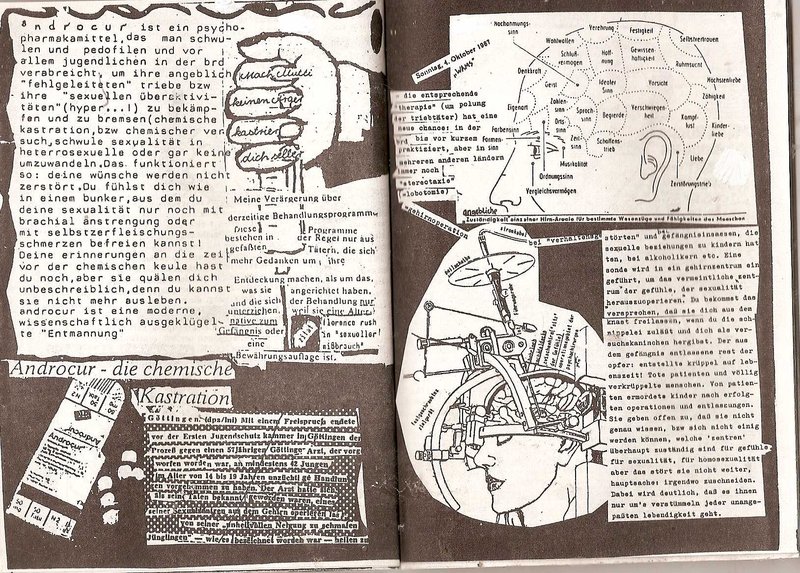 Androcur ist ein psycho-
pharmakamittel,das man schwu-
len und pedofilen und vor
allem jugendlichen in der brd
verabreicht, um ihre angeblich
"fehlgeleiteten" triebe bzw
ihre "sexuellen Überaktivi-
täten"(hyper...!) zu bekämp-
fen und zu bremsen(chemische
kastration,bzw chemischer ver
such,schwule sexualität in
heterrosexuelle oder gar keine
umzuwandeln.Das funktioniert
so: deine wünsche werden nicht
zerstört.Du fühlst dich wie
in einem bunker,aus dem du
deine sexualität nur noch mit
brachial änstrengung oder
mit selbstzerfleischungs-
schmerzen befreien kannst!
Deine erinnerungen an die zei
vor der chemischen keule hast
du noch,aber sie quälen dich
unbeschreiblich,denn du kannst
sie nicht mehr ausleben.
androcur ist eine moderne,
wissenschaftlich ausgeklügel-
te "Entmannung"
Mach Mutti
keinen Ärger
kastrier
dich selber
Meine Verärgerung über
derzeitige Behandlungsprogramme
diese Programme
bestehen in der Regel nur aus
gefaßten Tätern, die sich
mehr Gedanken um ihre
Entdeckung machen, als um das,
was sie angerichtet haben.
und die sich der Behandlung nur
unterziehen, weil sie eine Alter-
native zum
Gefängnis oder
eine
Bewährungsauflage ist.
florence rush
in "sexueller
mißbrauch"
Androcur - die chemische
Kastration
Androcur
Göttingen (dpa/lni) Mit einem Freispruch endete
vor der Ersten Jugendschutzkammer in Göttingen der
Prozeß gegen einen 57jährigen Göttinger Arzt, der vorge
worfen worden war, an mindestens 42 Jungen
im Alter von 14 bis 19 Jahren unzüchtige Handlun
gen vorgenommen zu haben. Der Arzt hatte sich,
als seine Taten bekannt geworden waren, eines
seiner Sexualzentren aus dem Gehirn operieren las
von seiner "unheilvollen Neigung zu schmalen
Jünglingen" — wie es bezeichnet worden war — heilen zu
Sonntag, 4. Oktober 1987
Nachahmungs-
sinn
Wohlwollen
Verehrung
Festigkeit
Selbstvertrauen
Schluß-
vermögen
Hoff-
nung
Gewissen-
haftigkeit
Ruhmsucht
Denkkraft
Geist
Idealer
Sinn
Vorsicht
Häuslichkeit
Eigenart
Zahlen-
sinn
Sprach-
sinn
Begierde
Verschwiegen-
heit
Kampf-
lust
Kinder-
liebe
Farbensinn
Formen-
sinn
Orts-
sinn
Zeit-
sinn
Schaffens-
trieb
Liebe
Musikalität
Ordnungssinn
Vergleichsvermögen
Zerstörungstrieb
angebliche
Zuständigkeit eins einer Hirn-Areale für bestimmte Wesenszüge und Fähigkeiten des Menschen
die entsprechende
therapie" (um polung
der triebtäter) hat eine
neue chance: in der
brd bis vor kurzem
praktiziert, aber in
mehreren anderen ländern
immer noch
"stereotaxie"
(-lobotomie)
gehirnoperation
bei "verhaltensge-
störten" und gefängnisinsassen, die
sexuelle beziehungen zu kindern hat
ten, bei alkoholikern etc. Eine
sonde wird in ein gehirnzentrum ein
geführt, um das vermeintliche zent-
rum der gefühle, der sexualität
herauszuoperieren. Du bekommst das
versprechen, daß sie dich aus dem
knast freilassen, wenn du die sch-
nippelei zuläßt und dich als ver-
suchskaninchen hergibst. Der aus
dem gefängnis entlassene rest der
opfer: entstellte krüppel auf le-
benszeit! Tote patienten und völlig
verkrüppelte menschen. Von patien-
ten ermordete kinder nach erfolg-
ten operationen und entlassungen.
Sie geben offen zu, daß sie nicht
genau wissen, bzw sich nicht einig
werden können, welche 'zentren'
überhaupt zuständig sind für gefühle
für sexualität, für homosexualität
aber das stört sie nicht weiter,
hauptsache: irgendwo zuschneiden.
Dabei wird deutlich, daß es ihnen
nur um's verstümmeln jeder unange-
paßten lebendigkeit geht.